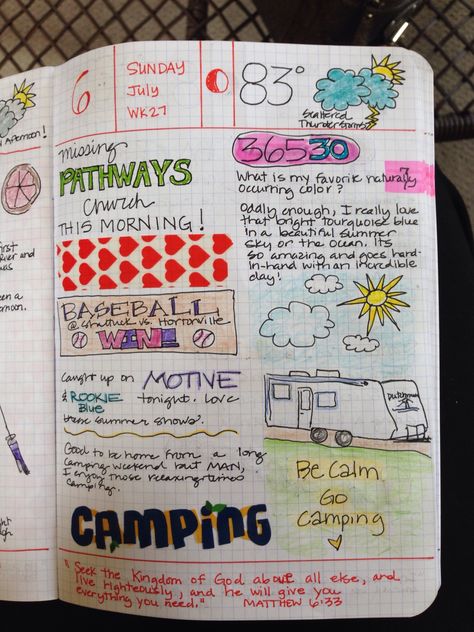 6
SUNDAY
July
WK27
83°
Scattered
Thunderstorms
Missing
PATHWAYS
Church
THIS MORNING!
36530
What is my favorite naturally
occurring color?
7
Oddly enough, I really love
that bright tourquoise blue
in a beautiful summer
sky or the ocean. Its
so amazing and goes hand-
in-hand with an incredible
day!
BASEBALL
@ Shattuck vs. Hortonville
WIN!
caught up on MOTIVE
& ROOKIE
Blue
tonight. Love
these summer shows.
Good to be home from a long
camping weekend but MAN,
I enjoy those relaxing times
camping.
CAMPING
Dutchmen
Be Calm
Go
Camping
"Seek the Kingdom of God above all else, and
live righteously, and he will give you
everything you need." MATTHEW 6:33
Afternoon!
first
River and
was
een a
ternoon.